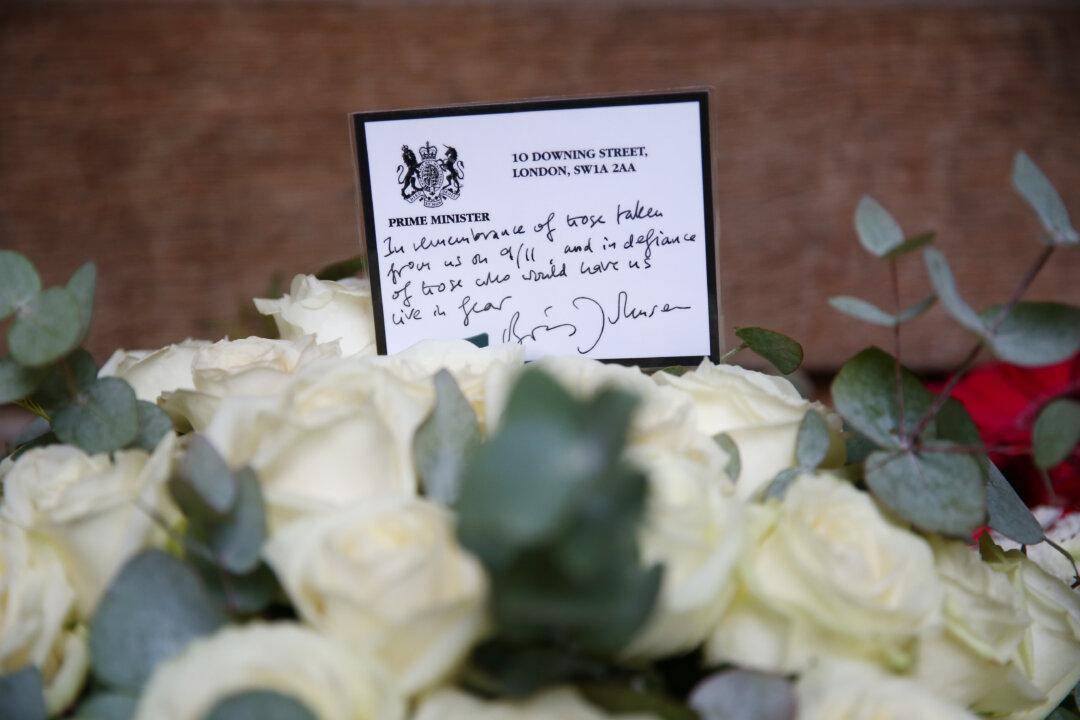 10 DOWNING STREET,
LONDON, SW1A 2AA
PRIME MINISTER
In remembrance of those taken
from us on 9/11 and in defiance
of those who would have us
live in fear
Boris Johnson